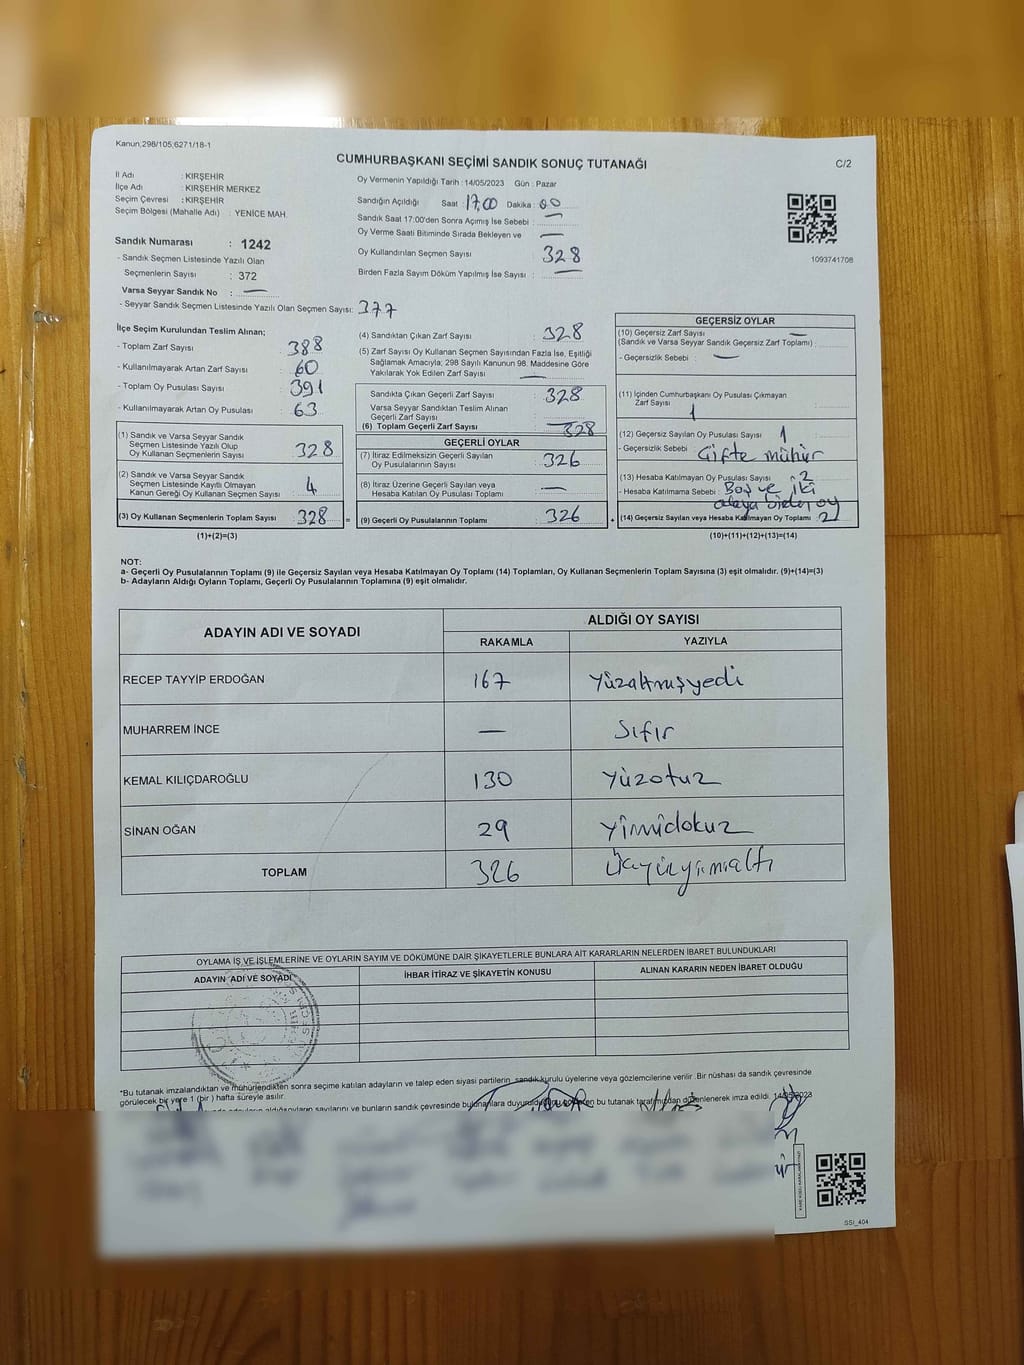 Kanun,298/105,6271/18-1
CUMHURBAŞKANI SEÇİMİ SANDIK SONUÇ TUTANAĞI
C/2
İl Adı : KIRŞEHİR
İlçe Adı : KIRŞEHİR MERKEZ
Seçim Çevresi : KIRŞEHİR
Seçim Bölgesi (Mahalle Adı) : YENİCE MAH.
Sandık Numarası : 1242
- Sandık Seçmen Listesinde Yazılı Olan
Seçmenlerin Sayısı : 372
Varsa Seyyar Sandık No : —
- Seyyar Sandık Seçmen Listesinde Yazılı Olan Seçmen Sayısı: 377
Oy Vermenin Yapıldığı Tarih : 14/05/2023 Gün : Pazar
Sandığın Açıldığı Saat 17,00 Dakika : 00
Sandık Saat 17:00'den Sonra Açımış İse Sebebi : —
Oy Verme Saati Bitiminde Sırada Bekleyen ve —
Oy Kullandırılan Seçmen Sayısı 328
Birden Fazla Sayım Döküm Yapılmış İse Sayısı : —
1093741708
İlçe Seçim Kurulundan Teslim Alınan;
- Toplam Zarf Sayısı : 388
- Kullanılmayarak Artan Zarf Sayısı : 60
- Toplam Oy Pusulası Sayısı : 391
- Kullanılmayarak Artan Oy Pusulası : 63
(1) Sandık ve Varsa Seyyar Sandık
Seçmen Listesinde Yazılı Olup
Oy Kullanan Seçmenlerin Sayısı : 328
(2) Sandık ve Varsa Seyyar Sandık
Seçmen Listesinde Kayıtlı Olmayan
Kanun Gereği Oy Kullanan Seçmen Sayısı : 4
(3) Oy Kullanan Seçmenlerin Toplam Sayısı : 328 =
(1)+(2)=(3)
(4) Sandıktan Çıkan Zarf Sayısı : 328
(5) Zarf Sayısı Oy Kullanan Seçmen Sayısından Fazla İse, Eşitliği
Sağlamak Amacıyla; 298 Sayılı Kanunun 98. Maddesine Göre
Yakılarak Yok Edilen Zarf Sayısı : —
Sandıkta Çıkan Geçerli Zarf Sayısı : 328
Varsa Seyyar Sandıktan Teslim Alınan
Geçerli Zarf Sayısı : —
(6) Toplam Geçerli Zarf Sayısı : 328
GEÇERLİ OYLAR
(7) İtiraz Edilmeksizin Geçerli Sayılan
Oy Pusulalarının Sayısı : 326
(8) İtiraz Üzerine Geçerli Sayılan veya
Hesaba Katılan Oy Pusulası Toplamı : —
(9) Geçerli Oy Pusulalarının Toplamı : 326 +
GEÇERSİZ OYLAR
(10) Geçersiz Zarf Sayısı —
(Sandık ve Varsa Seyyar Sandık Geçersiz Zarf Toplamı) :
- Geçersizlik Sebebi : —
(11) İçinden Cumhurbaşkanı Oy Pusulası Çıkmayan
Zarf Sayısı : 1
(12) Geçersiz Sayılan Oy Pusulası Sayısı : 1
- Geçersizlik Sebebi : Çifte mühür
(13) Hesaba Katılmayan Oy Pusulası Sayısı : 2
- Hesaba Katılmama Sebebi : Boş ve iki
adaya birden oy
(14) Geçersiz Sayılan veya Hesaba Katılmayan Oy Toplamı : 2
(10)+(11)+(12)+(13)=(14)
NOT:
a- Geçerli Oy Pusulalarının Toplamı (9) ile Geçersiz Sayılan veya Hesaba Katılmayan Oy Toplamı (14) Toplamları, Oy Kullanan Seçmenlerin Toplam Sayısına (3) eşit olmalıdır. (9)+(14)=(3)
b- Adayların Aldığı Oyların Toplamı, Geçerli Oy Pusulalarının Toplamına (9) eşit olmalıdır.
ADAYIN ADI VE SOYADI
ALDIĞI OY SAYISI
RAKAMLA YAZIYLA
RECEP TAYYİP ERDOĞAN 167 Yüzaltmışyedi
MUHARREM İNCE — Sıfır
KEMAL KILIÇDAROĞLU 130 Yüzotuz
SİNAN OĞAN 29 Yirmidokuz
TOPLAM 326 Üçyüzyirmialtı
OYLAMA İŞ VE İŞLEMLERİNE VE OYLARIN SAYIM VE DÖKÜMÜNE DAİR ŞİKAYETLERLE BUNLARA AİT KARARLARIN NELERDEN İBARET BULUNDUKLARI
ADAYIN ADI VE SOYADI İHBAR İTİRAZ VE ŞİKAYETİN KONUSU ALINAN KARARIN NEDEN İBARET OLDUĞU
*Bu tutanak imzalandıktan ve mühürlendikten sonra seçime katılan adayların ve talep eden siyasi partilerin sandık kurulu üyelerine veya gözlemcilerine verilir. Bir nüshası da sandık çevresinde
görülecek bir yere 1 (bir ) hafta süreyle asılır.
oyların sayılarını ve bunların sandık çevresinde bulunanlara bu tutanak tarafımızdan düzenlenerek imza edildi. 14/05/2023
SSI_404